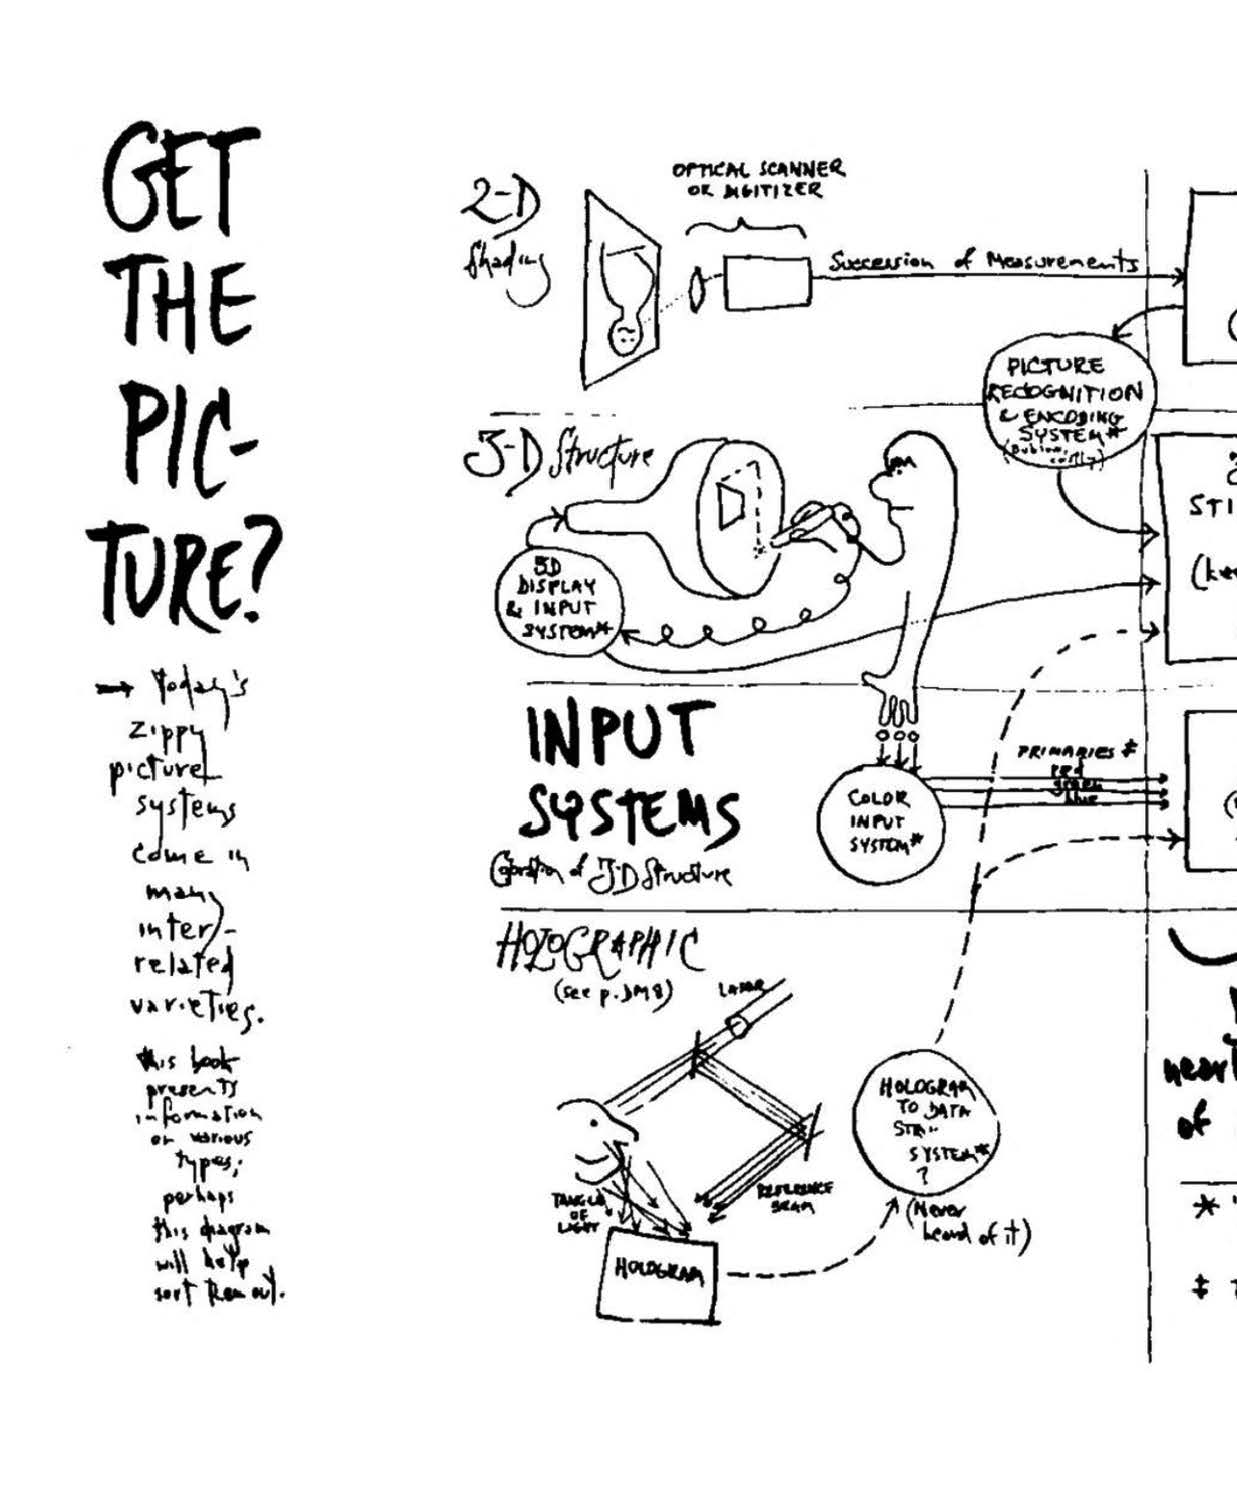 GET
THE
PIC-
TURE?
→ Today's
zippy
picture
systems
come in
many
inter-
related
varieties.
this book
presents
information
on various
types;
perhaps
this diagram
will help
sort them out.
2-D
Shading
OPTICAL SCANNER
OR DIGITIZER
Succession of Measurements
PICTURE
RECOGNITION
& ENCODING
SYSTEM*
3-D Structure
3D
DISPLAY
& INPUT
SYSTEM*
STI
INPUT
SYSTEMS
of 3-D Structure
COLOR
INPUT
SYSTEM*
PRIMARIES ‡
red
green
blue
HOLOGRAPHIC
(see p. DM8)
LASER
TANGLE
OF
LIGHT
REFERENCE
BEAM
HOLOGRAM
HOLOGRAM
TO DATA
SYSTEM*
?
(Never
heard of it)
of
*
‡